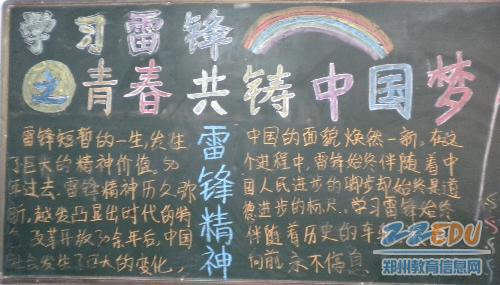 学习雷锋
之青春共铸中国梦
雷锋短暂的一生,发生
了巨大的精神价值。50
年过去,雷锋精神历久弥
新,越发凸显出时代的特
色。改革开放30余年后,中国
社会发生了巨大的变化,
雷锋精神
中国的面貌焕然一新。在这
个进程中,雷锋始终伴随着中
国人民进步的脚步却始终是道
德进步的标尺。学习雷锋始终
伴随着历史的车
向前永不停息。
ZZEDU
郑州教育信息网